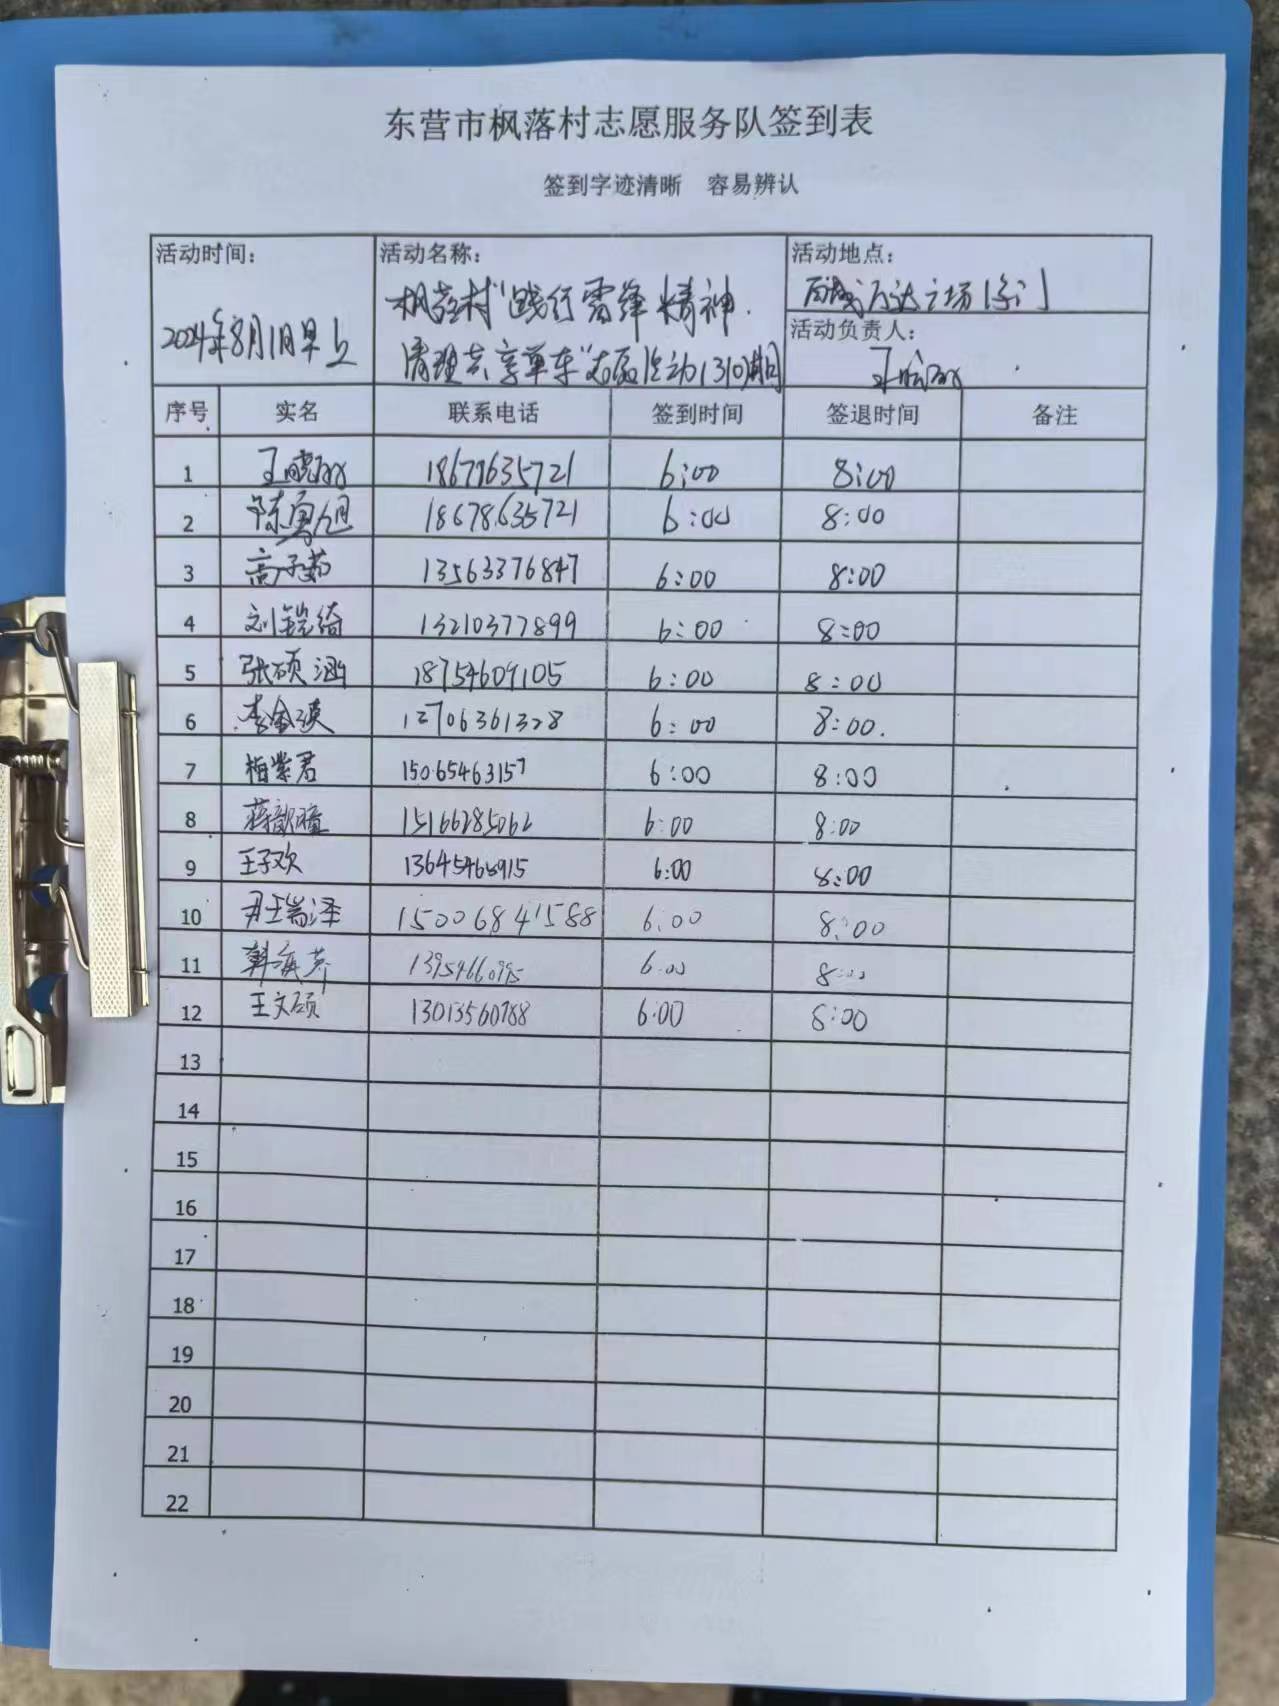 东营市枫落村志愿服务队签到表
签到字迹清晰 容易辨认
活动时间: 2024年8月1日早上
活动名称: 枫落村"践行雷锋精神
清理共享单车"志愿活动1310期
活动地点: 万达广场
活动负责人: 王晓
序号 实名 联系电话 签到时间 签退时间 备注
1 王晓 18678635721 6:00 8:00
2 陈勇旭 18678635721 6:00 8:00
3 高子茹 13563376847 6:00 8:00
4 刘铠绮 13210377899 6:00 8:00
5 张硕涵 18754609105 6:00 8:00
6 李金 12706361328 6:00 8:00.
7 柏紫君 15065463157 6:00 8:00
8 蒋歆瞳 15166285062 6:00 8:00
9 王子欢 6:00 8:00
10 尹王瑞泽 15006841588 6:00 8:00
11 韩 6:00 8:00
12 王文硕 13013560788 6:00 8:00
13
14
15
16
17
18
19
20
21
22